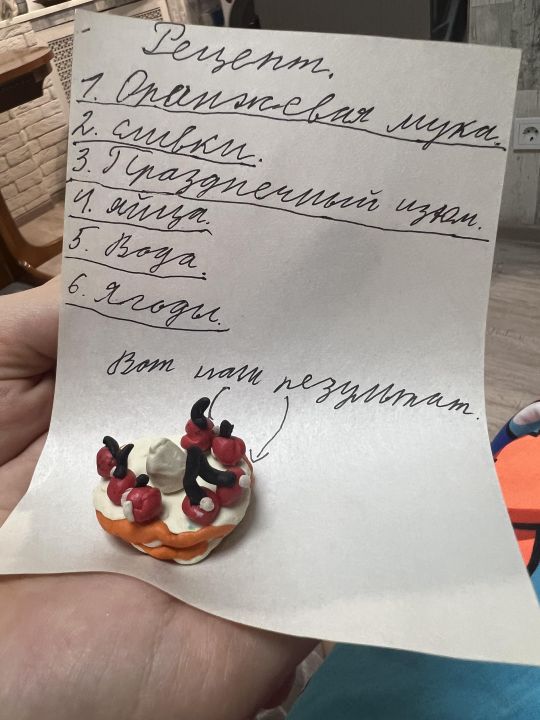 Рецепт.
1. Оранжевая мука.
2. сливки.
3. Празднечный изюм.
4. яйца.
5. Вода.
6. Ягоды.
Вот наш результат.